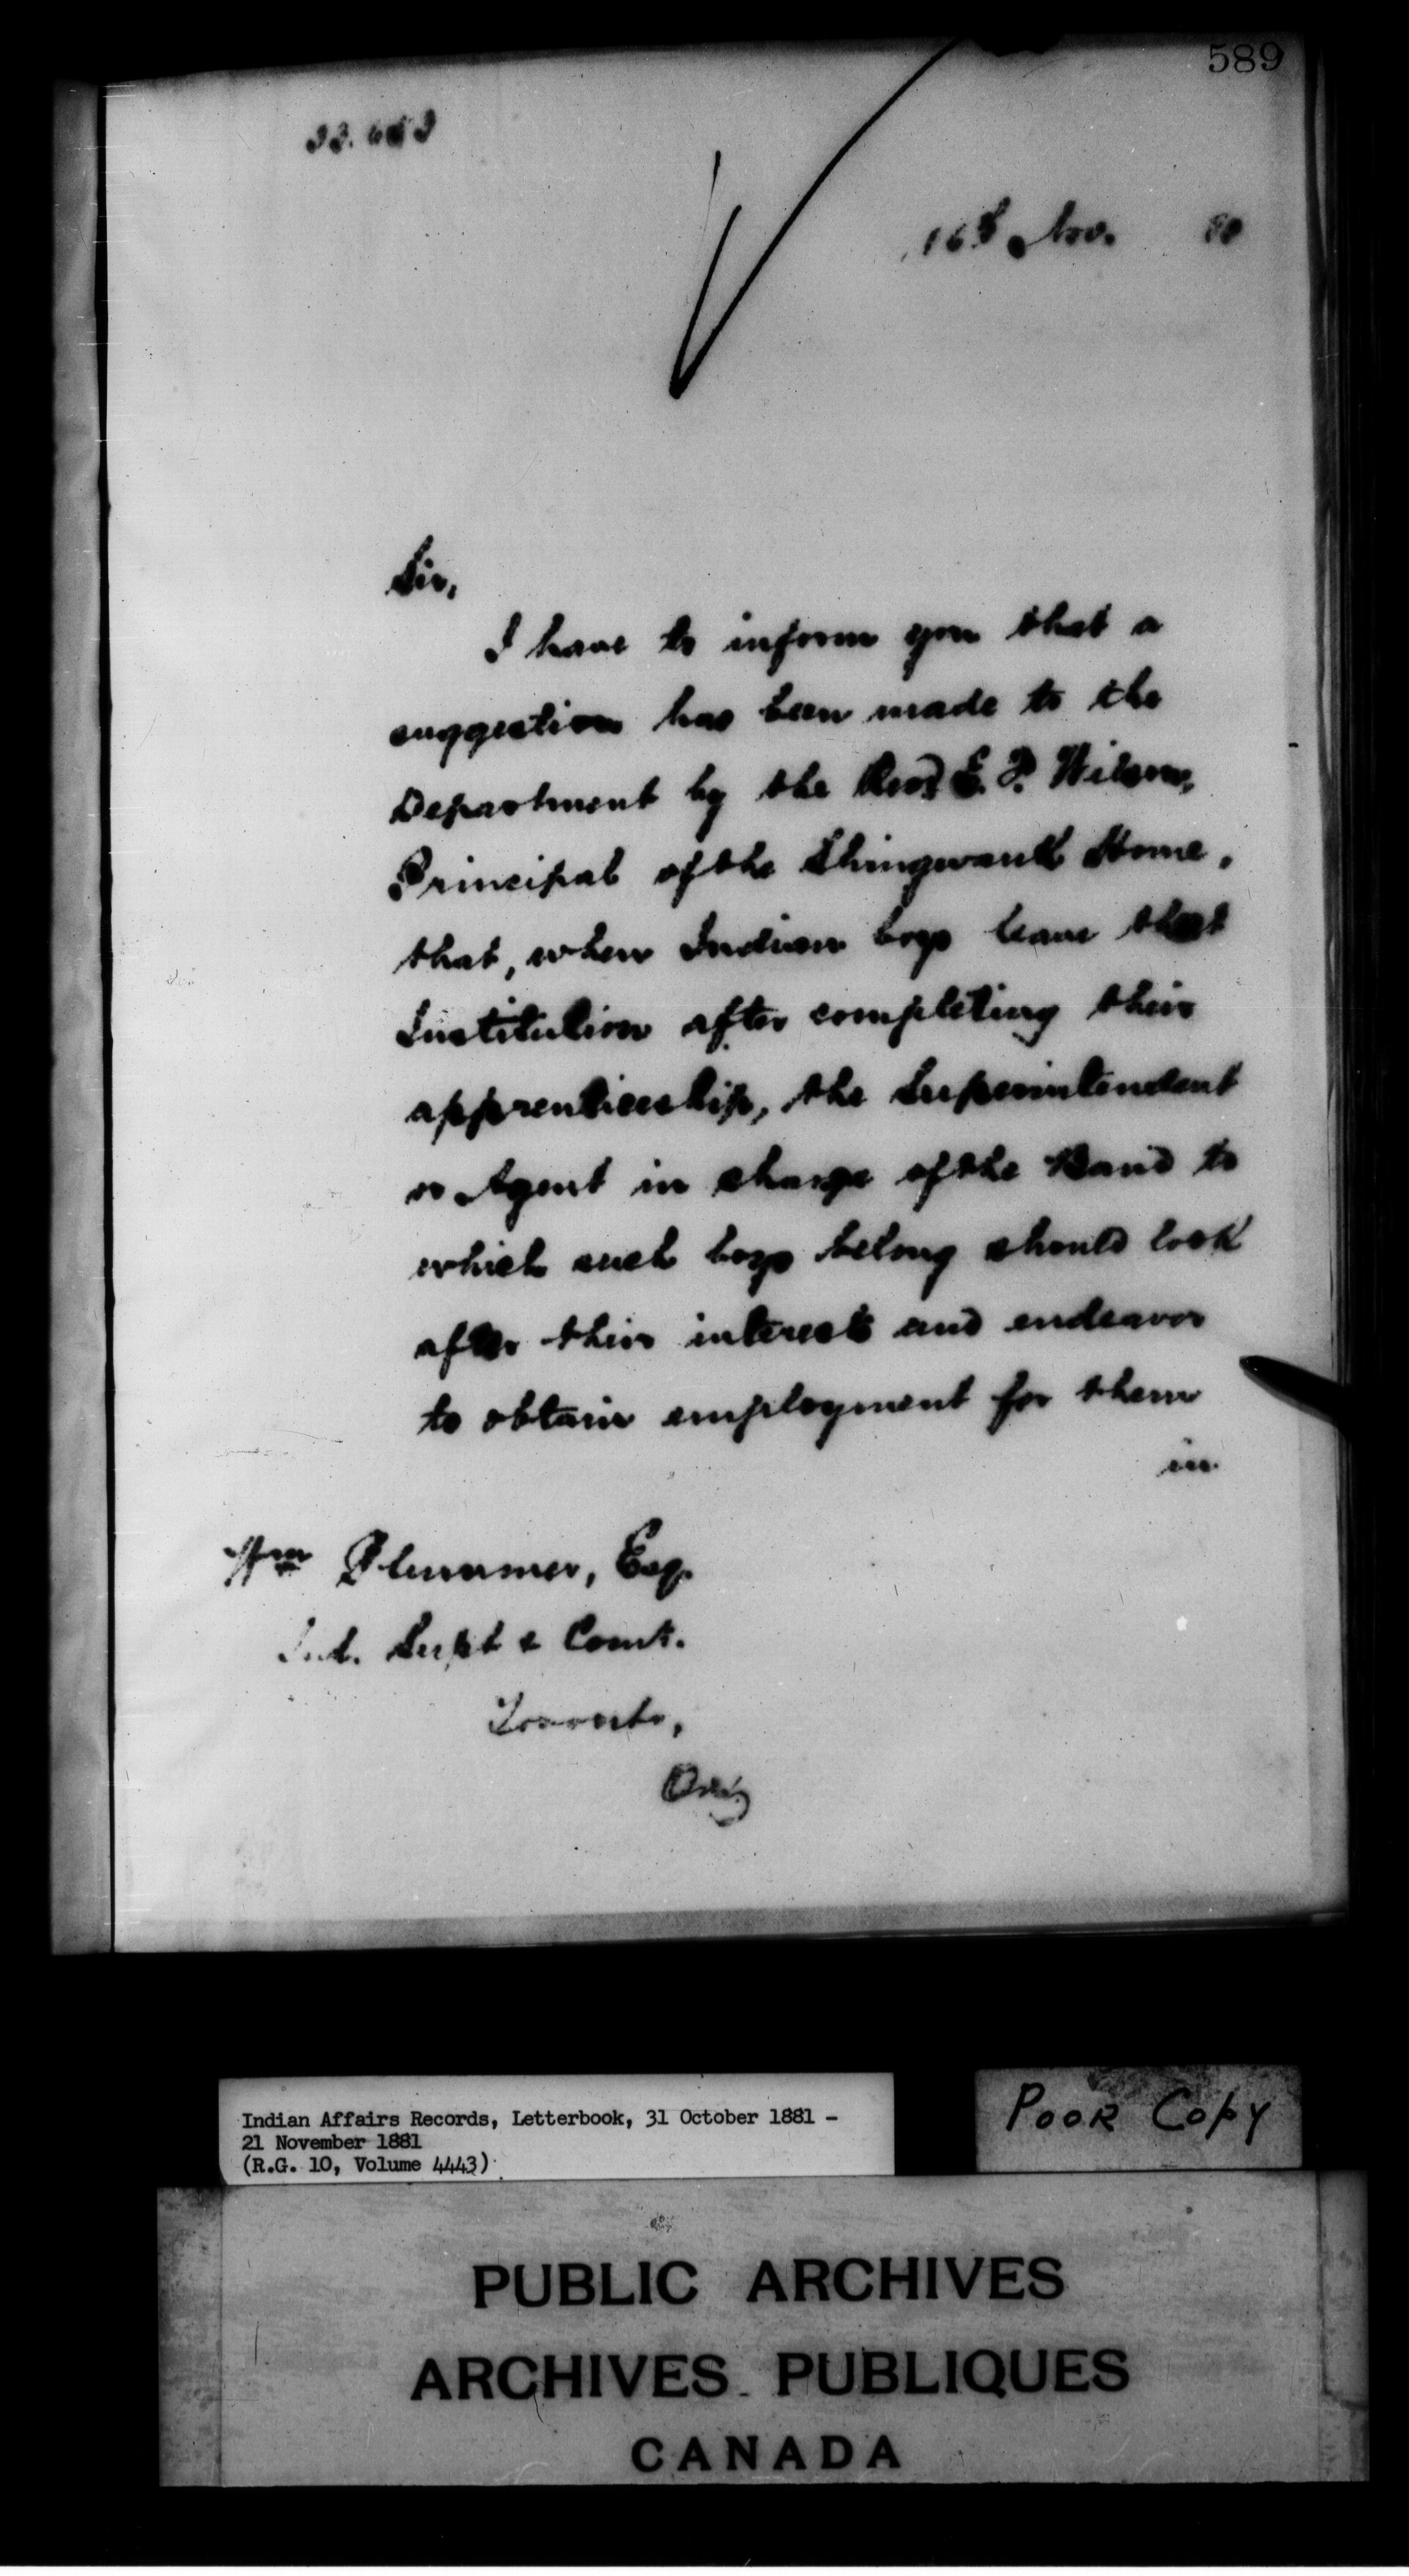 589
16th Nov. 81
Sir,
I have to inform you that a
suggestion has been made to the
Department by the Revd E. F. Wilson,
Principal of the Shingwauk Home,
that, when Indian boys leave that
Institution after completing their
apprenticeship, the Superintendent
or Agent in charge of the Band to
which such boys belong should look
after their interests and endeavor
to obtain employment for them
in
Wm Plummer, Esq.
Ind. Supt & Comr.
Toronto,
Ont.
Indian Affairs Records, Letterbook, 31 October 1881 -
21 November 1881
(R.G. 10, Volume 4443)
Poor Copy
PUBLIC ARCHIVES
ARCHIVES PUBLIQUES
CANADA